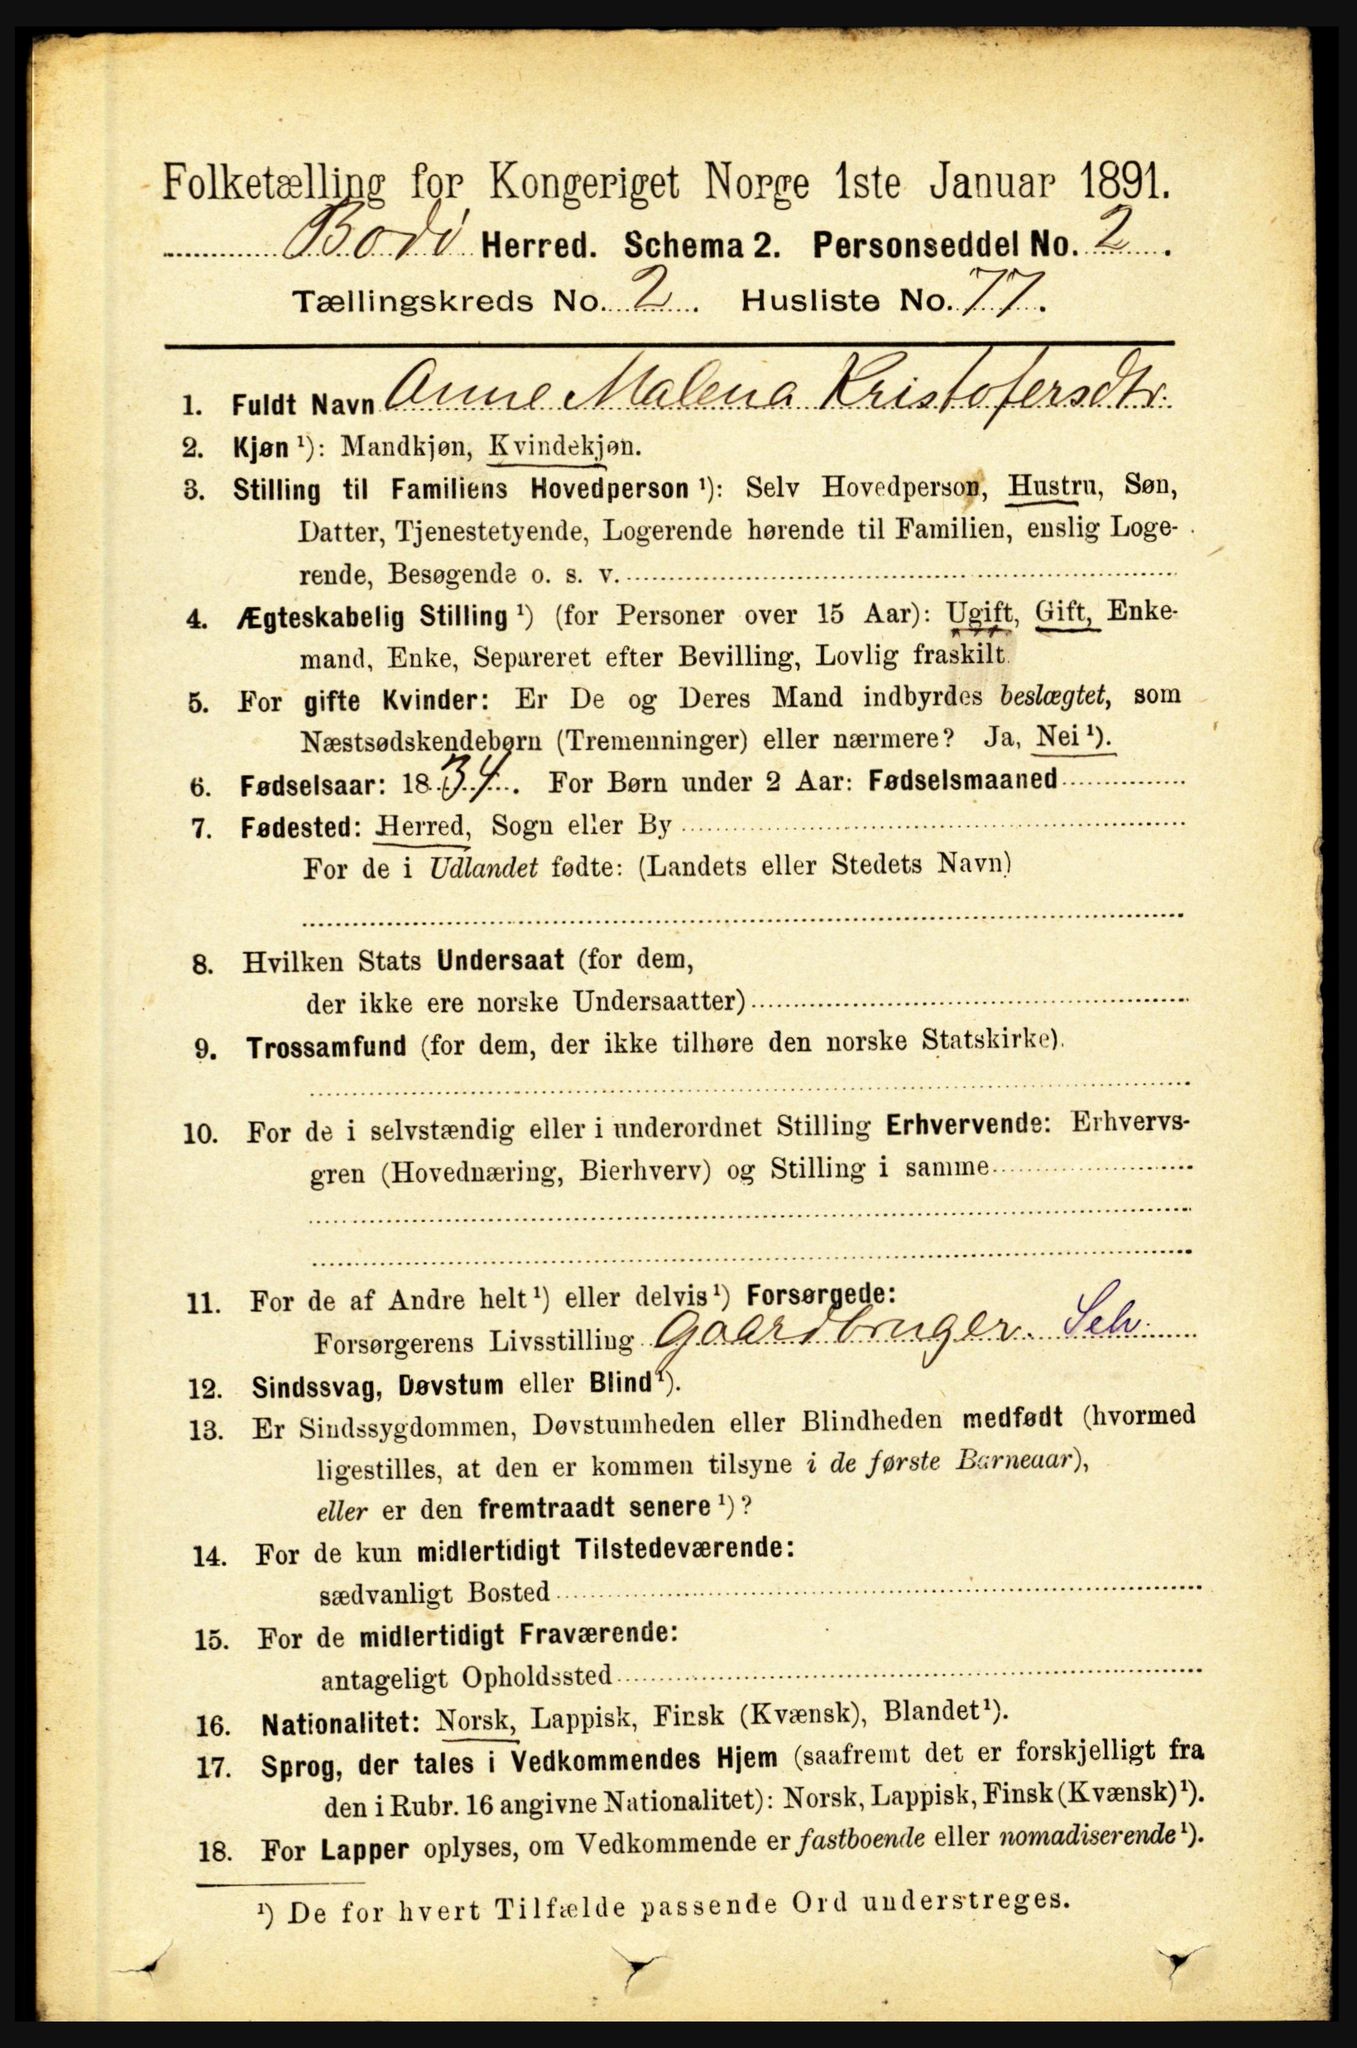 Folketælling for Kongeriget Norge 1ste Januar 1891.
Bodö Herred. Schema 2. Personseddel No. 2.
Tællingskreds No. 2. Husliste No. 77.
1. Fuldt Navn Anne Malena Kristofersdtr.
2. Kjøn ¹): Mandkjøn, Kvindekjøn.
3. Stilling til Familiens Hovedperson ¹): Selv Hovedperson, Hustru, Søn,
Datter, Tjenestetyende, Logerende hørende til Familien, enslig Loge-
rende, Besøgende o. s. v.
4. Ægteskabelig Stilling ¹) (for Personer over 15 Aar): Ugift, Gift, Enke-
mand, Enke, Separeret efter Bevilling, Lovlig fraskilt.
5. For gifte Kvinder: Er De og Deres Mand indbyrdes beslægtet, som
Næstsødskendebørn (Tremenninger) eller nærmere? Ja, Nei ¹).
6. Fødselsaar: 1834. For Børn under 2 Aar: Fødselsmaaned
7. Fødested: Herred, Sogn eller By
For de i Udlandet fødte: (Landets eller Stedets Navn)
8. Hvilken Stats Undersaat (for dem,
der ikke ere norske Undersaatter)
9. Trossamfund (for dem, der ikke tilhøre den norske Statskirke).
10. For de i selvstændig eller i underordnet Stilling Erhvervende: Erhvervs-
gren (Hovednæring, Bierhverv) og Stilling i samme
11. For de af Andre helt ¹) eller delvis ¹) Forsørgede:
Forsørgerens Livsstilling Gaardbruger. Selv.
12. Sindssvag, Døvstum eller Blind ¹).
13. Er Sindssygdommen, Døvstumheden eller Blindheden medfødt (hvormed
ligestilles, at den er kommen tilsyne i de første Barneaar),
eller er den fremtraadt senere ¹)?
14. For de kun midlertidigt Tilstedeværende:
sædvanligt Bosted
15. For de midlertidigt Fraværende:
antageligt Opholdssted
16. Nationalitet: Norsk, Lappisk, Finsk (Kvænsk), Blandet ¹).
17. Sprog, der tales i Vedkommendes Hjem (saafremt det er forskjelligt fra
den i Rubr. 16 angivne Nationalitet): Norsk, Lappisk, Finsk (Kvænsk) ¹).
18. For Lapper oplyses, om Vedkommende er fastboende eller nomadiserende ¹).
¹) De for hvert Tilfælde passende Ord understreges.